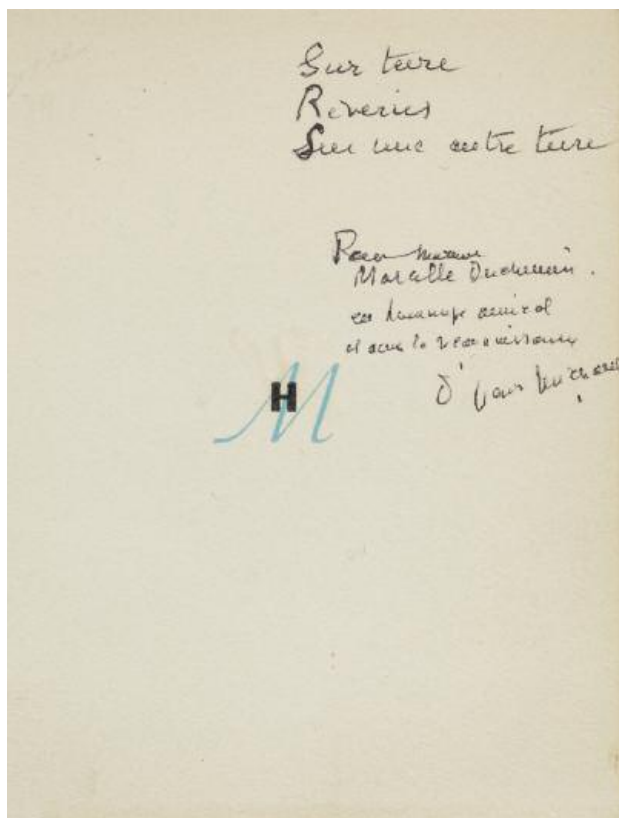 Sur terre
Reveries
Sur une autre terre
Pour
Marcelle Duchemin.
en hommage amical
et avec la reconnaissance
d'
H M